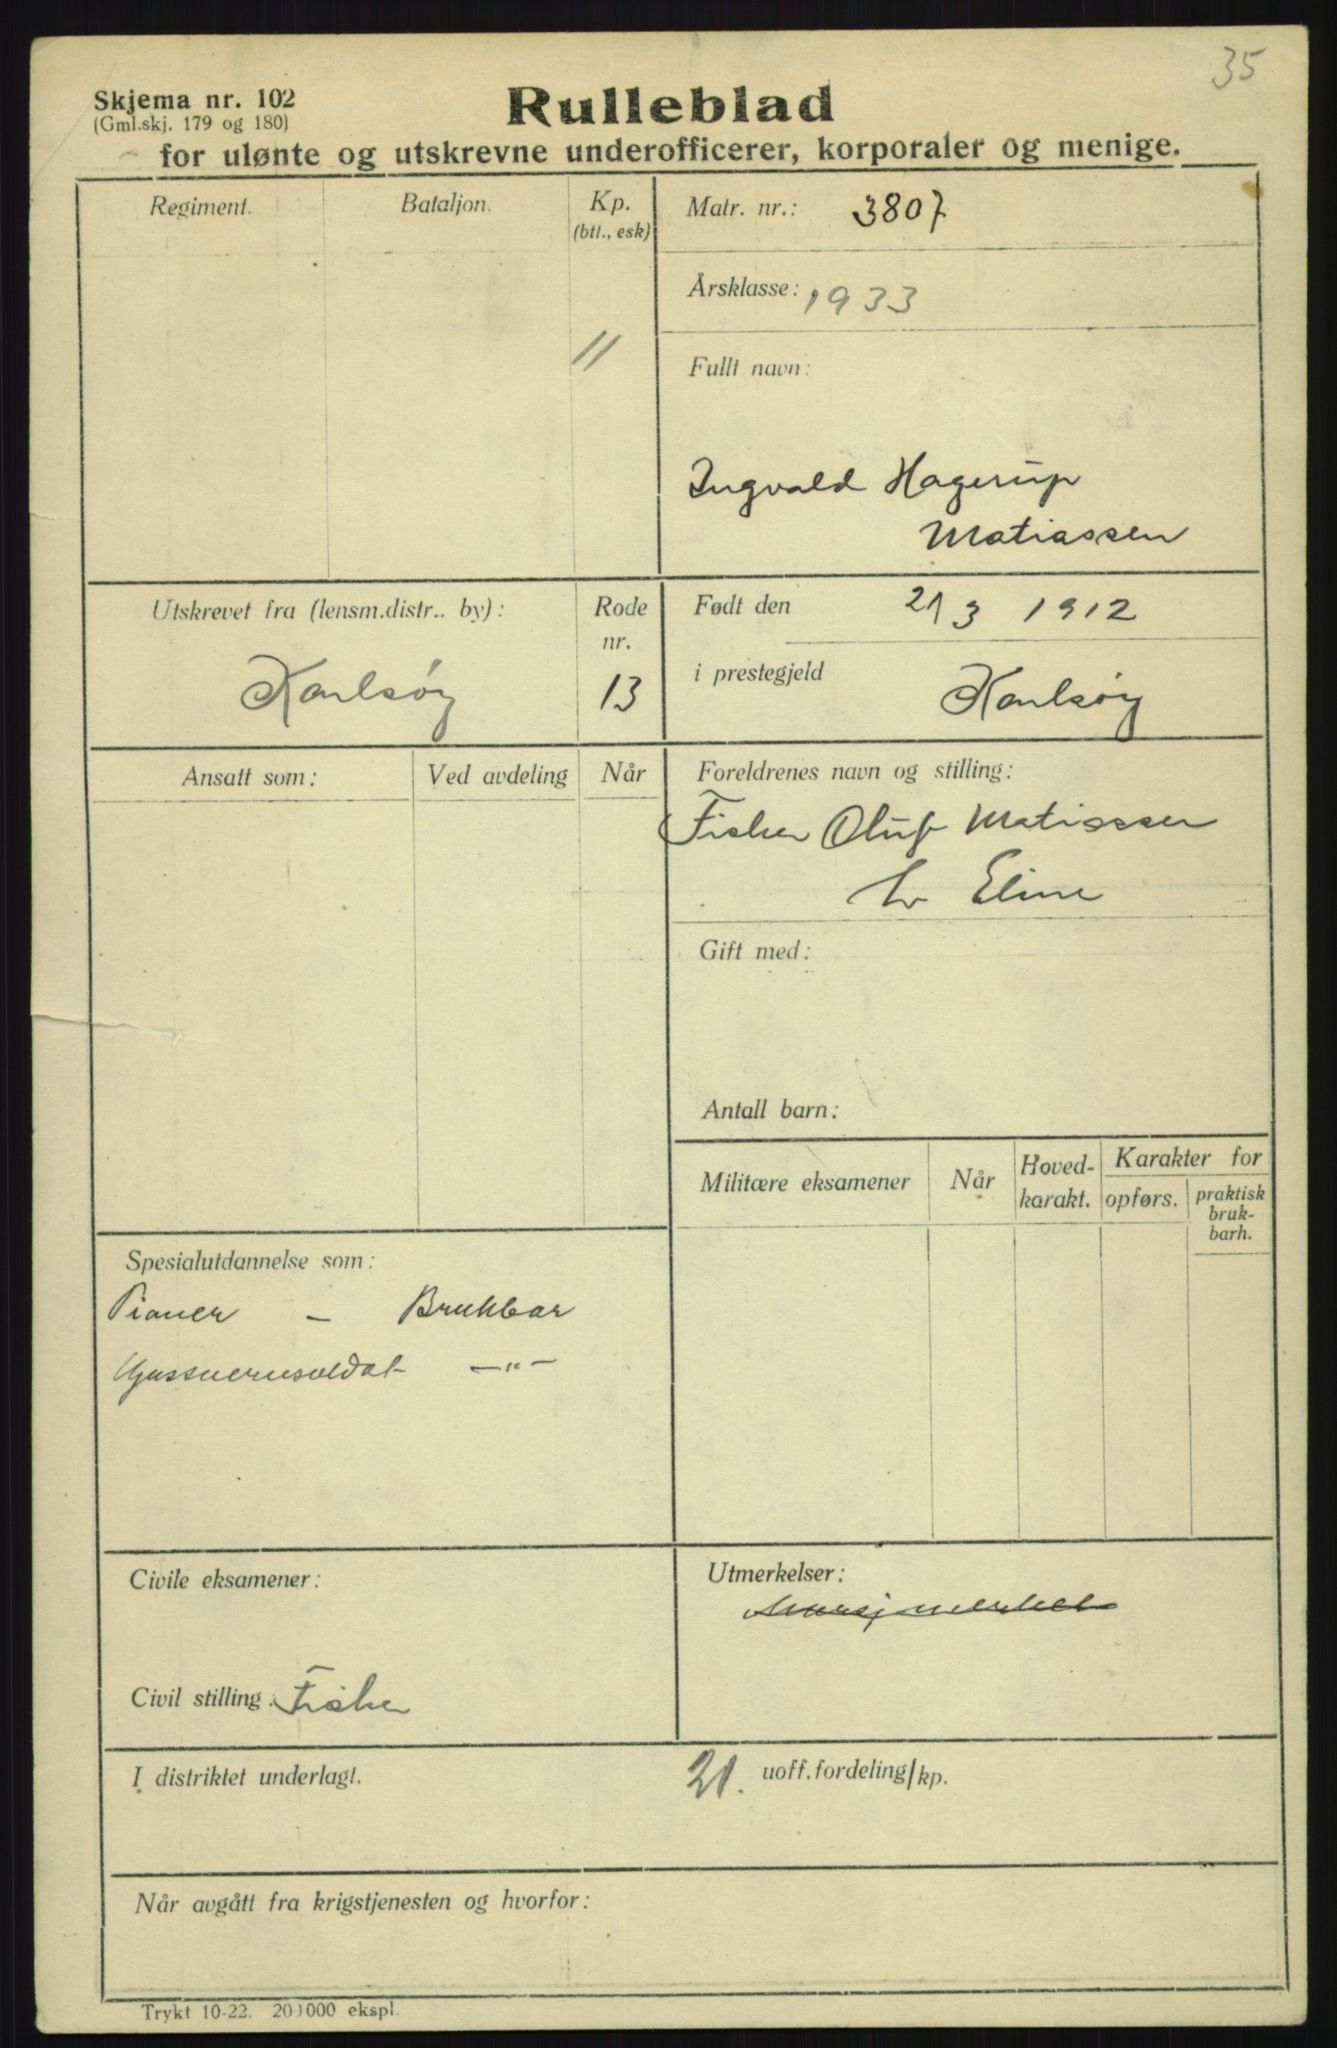 35
Skjema nr. 102
(Gml.skj. 179 og 180)
Rulleblad
for ulønte og utskrevne underofficerer, korporaler og menige.
Regiment.
Bataljon.
Kp.
(btl., esk)
11
Matr. nr.: 3807
Årsklasse: 1933
Fullt navn:
Ingvald Hagerup
Matiassen
Utskrevet fra (lensm.distr.. by):
Karlsøy
Rode
nr.
13
Født den 21 3 1912
i prestegjeld Karlsøy
Ansatt som:
Ved avdeling
Når
Foreldrenes navn og stilling:
Fisker Oluf Matiassen
Eline
Gift med:
Antall barn:
Militære eksamener
Når
Hoved-
karakt.
Karakter for
opførs.
praktisk
bruk-
barh.
Spesialutdannelse som:
Pioner – Brukbar
Gassvernsoldat —"—
Civile eksamener:
Civil stilling: Fisker
Utmerkelser:
Marsjmerket
I distriktet underlagt.
21. uoff.fordeling/kp.
Når avgått fra krigstjenesten og hvorfor:
Trykt 10-22. 200000 ekspl.